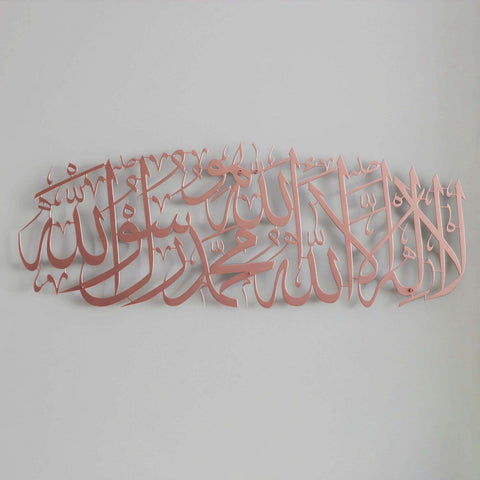 لا إله إلا الله الله هو محمد رسول الله